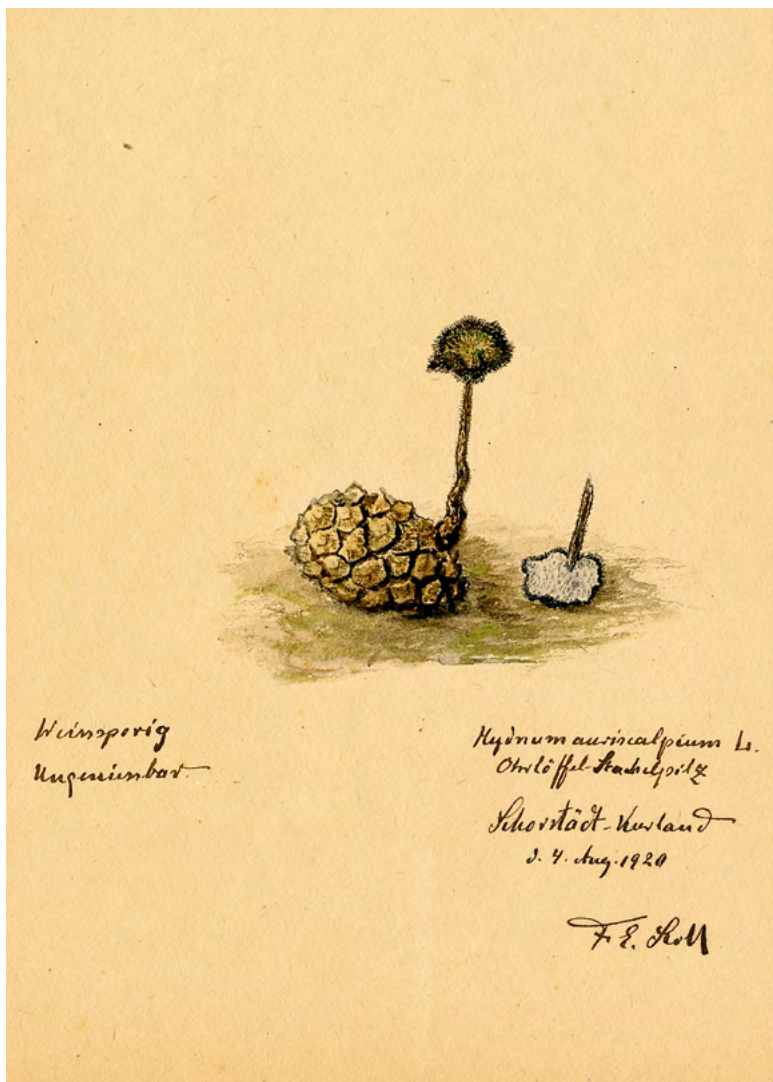 Weissporig
Ungeniessbar
Hydnum auriscalpium L.
Ohrlöffel-Stachelpilz
Schorstädt-Kurland
d. 4. Aug. 1920
F. E. Stoll